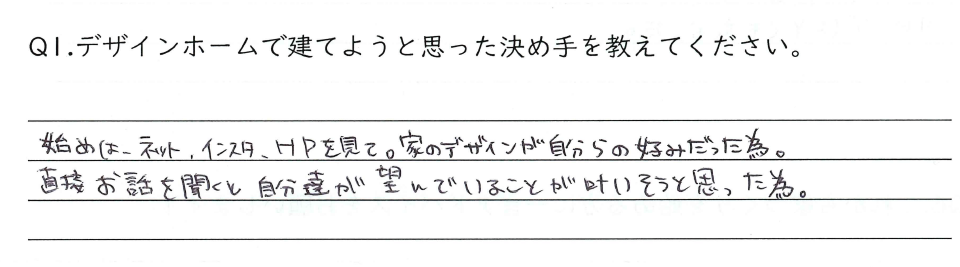 Q1.デザインホームで建てようと思った決め手を教えてください。
始めは、ネット、インスタ、HPを見て。家のデザインが自分らの好みだった為。
直接お話を聞くと自分達が望んでいることが叶いそうと思った為。